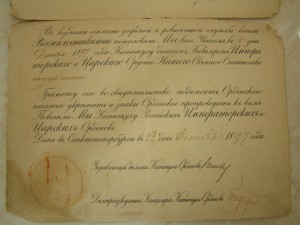 Во воздаяние отлично усердной и ревностной службы вашей
Всемилостивѣйше пожаловали Мы васъ Указомъ въ 1 день
1897 года Капитулу даннымъ, Кавалеромъ Импера-
торскаго и Царскаго Ордена Нашего Святаго Станислава
степени
Грамоту сію во свидѣтельство подписать, Орденскою
печатью укрѣпить и знаки Орденскіе препроводить къ вамъ
Повелѣли Мы Капитулу Россійскихъ Императорскихъ и
Царскихъ Орденовъ.
Дана въ Санктпетербургѣ въ день 1897 года
Управляющій дѣлами Капитула Орденовъ
Дѣлопроизводитель Канцеляріи Капитула Орденовъ